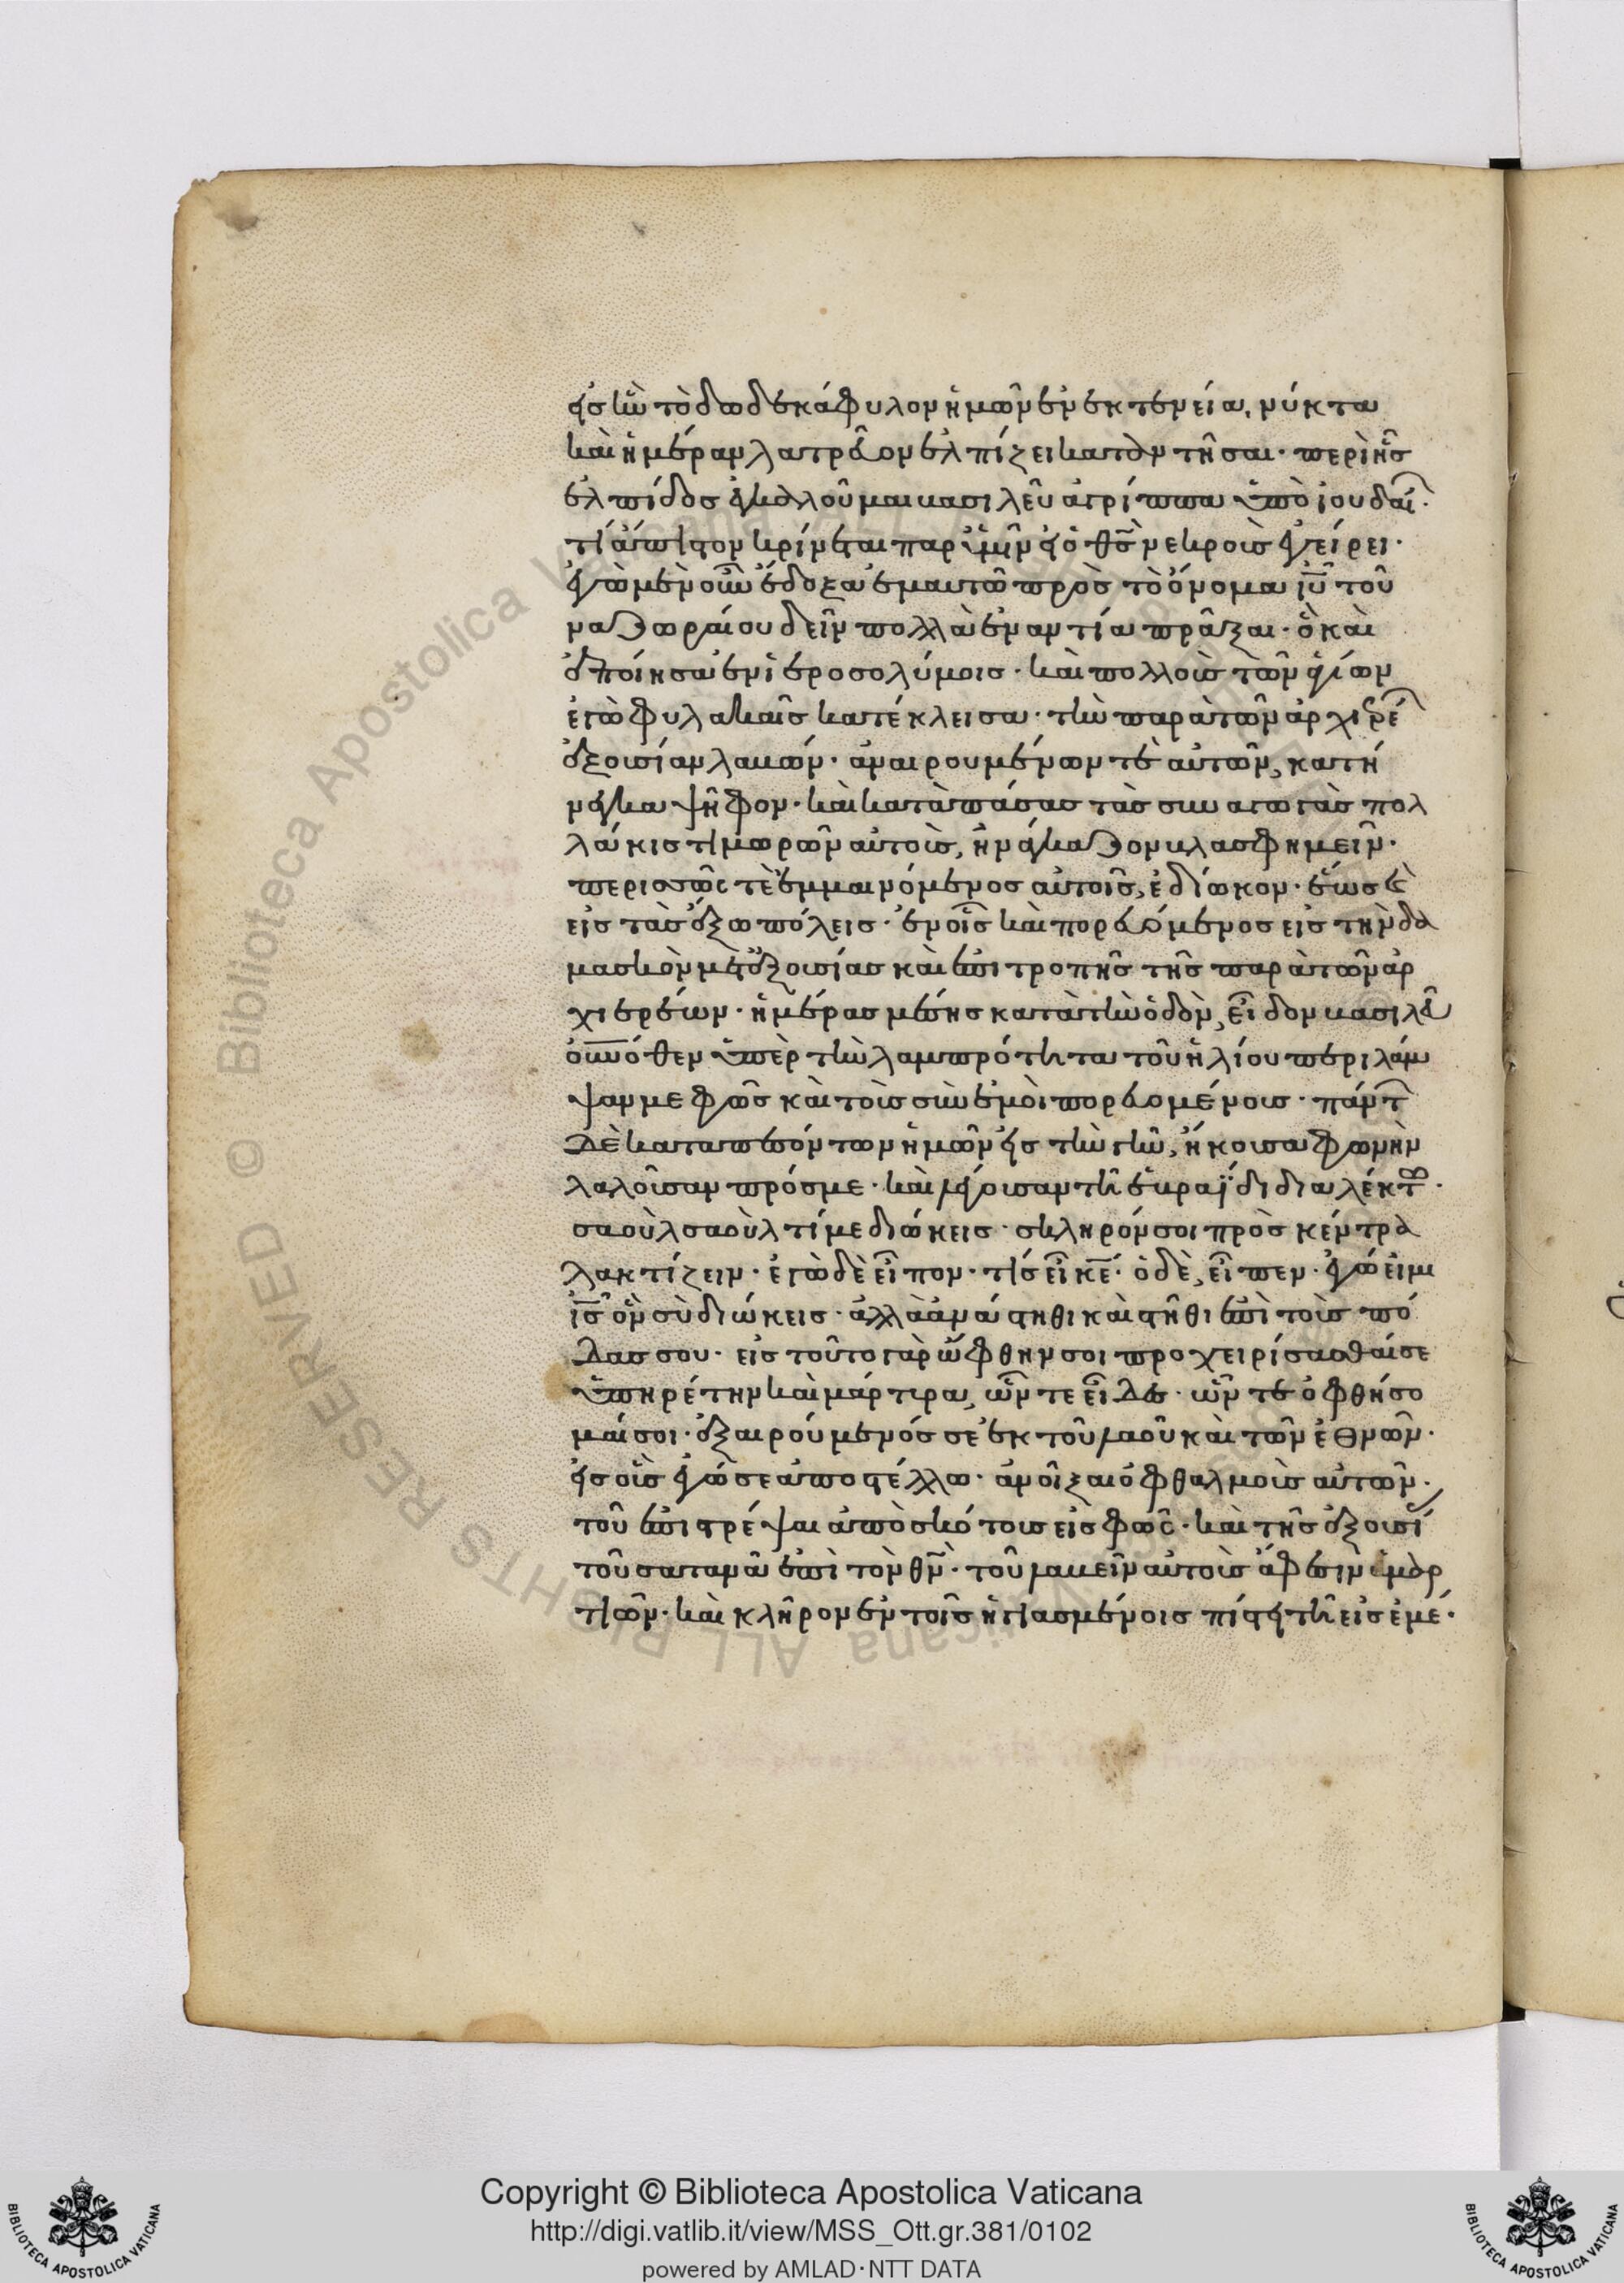 εἰς ἣν τὸ δωδεκάφυλον ἡμῶν ἐν ἐκτενείᾳ, νύκτα
καὶ ἡμέραν λατρεῦον ἐλπίζει καταντῆσαι· περὶ ἧς
ἐλπίδος ἐγκαλοῦμαι βασιλεῦ ἀγρίππα ὑπὸ ἰουδαί·
τί ἄπιστον κρίνεται παρ' ὑμῖν εἰ ὁ θς̅ νεκροὺς ἐγείρει·
ἐγὼ μὲν οὖν ἔδοξα ἐμαυτῶ πρὸς τὸ ὄνομα ιυ̅ τοῦ
ναζωραίου δεῖν πολλὰ ἐναντία πρᾶξαι· ὃ καὶ
ἐποίησα ἐν ἱεροσολύμοις· καὶ πολλοὺς τῶν ἁγίων
ἐγὼ φυλακαῖς κατέκλεισα· τὴν παρὰ τῶν ἀρχιερέ
ἐξουσίαν λαβών· ἀναιρουμένων τὲ αὐτῶν, κατή
νεγκα ψῆφον· καὶ κατὰ πάσας τὰς συναγωγὰς πολ
λάκις τιμωρῶν αὐτοὺς, ἠνάγκαζον βλασφημεῖν·
περισσῶς τὲ ἐμμαινόμενος αὐτοῖς, ἐδίωκον· ἕως καὶ
εἰς τὰς ἔξω πόλεις· ἐν οἷς καὶ πορευόμενος εἰς τὴν δα
μασκὸν μετ' ἐξουσίας καὶ ἐπιτροπῆς τῆς παρὰ τῶν ἀρ
χιερέων· ἡμέρας μέσης κατὰ τὴν ὁδὸν, εἶδον βασιλεῦ
οὐνόθεν ὑπὲρ τὴν λαμπρότητα τοῦ ἡλίου περιλάμ
ψαν με φῶς καὶ τοὺς σὺν ἐμοὶ πορευομένους· πάντ
δὲ καταπεσόντων ἡμῶν εἰς τὴν γῆν, ἤκουσα φωνὴν
λαλοῦσαν πρός με· καὶ λέγουσαν τῆ ἑβραΐδι διαλέκτω·
σαοὺλ σαοὺλ τί με διώκεις· σκληρόν σοι πρὸς κέντρα
λακτίζειν· ἐγὼ δὲ εἶπον· τίς εἶ κε̅· ὁ δὲ, εἶπεν· ἐγώ εἰμι
ις̅ ὃν σὺ διώκεις· ἀλλὰ ἀνάστηθι καὶ στῆθι ἐπὶ τοὺς πό
δας σου· εἰς τοῦτο γὰρ ὤφθην σοι προχειρίσασθαί σε
ὑπηρέτην καὶ μάρτυρα, ὧν τε εἶδες· ὧν τε ὀφθήσο
μαί σοι· ἐξαιρούμενός σε ἐκ τοῦ λαοῦ καὶ τῶν ἐθνῶν·
εἰς οὓς ἐγώ σε ἀποστέλλω· ἀνοῖξαι ὀφθαλμοὺς αὐτῶν·
τοῦ ἐπιστρέψαι ἀπὸ σκότους εἰς φῶς· καὶ τῆς ἐξουσί
τοῦ σατανᾶ ἐπὶ τὸν θν̅· τοῦ λαβεῖν αὐτοὺς ἄφεσιν ἁμαρ
τιῶν· καὶ κλῆρον ἐν τοῖς ἡγιασμένοις πίστει τῆ εἰς ἐμέ·
Copyright © Biblioteca Apostolica Vaticana
http://digi.vatlib.it/view/MSS_Ott.gr.381/0102
powered by AMLAD·NTT DATA